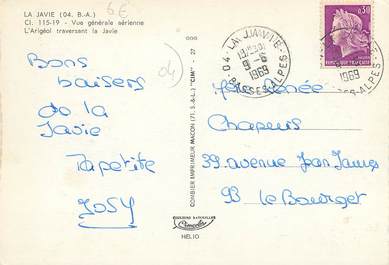 LA JAVIE (04. B.A.)
Cl. 115-19 - Vue générale aérienne
L'Arigéol traversant la Javie
6€
04
Bons
baisers
de la
Javie
la petite
JOSY
COMBIER IMPRIMEUR MACON (71. S.-&-L.) "CIM" - 27
ÉDITIONS NATURELLES
Cimcolor
HÉLIO
04 - LA JAVIE -
9-6
1969
BASSES-ALPES
0,30
1969
Renée
Chapeus
39 avenue Jean Jaurès
93 Le Bourget